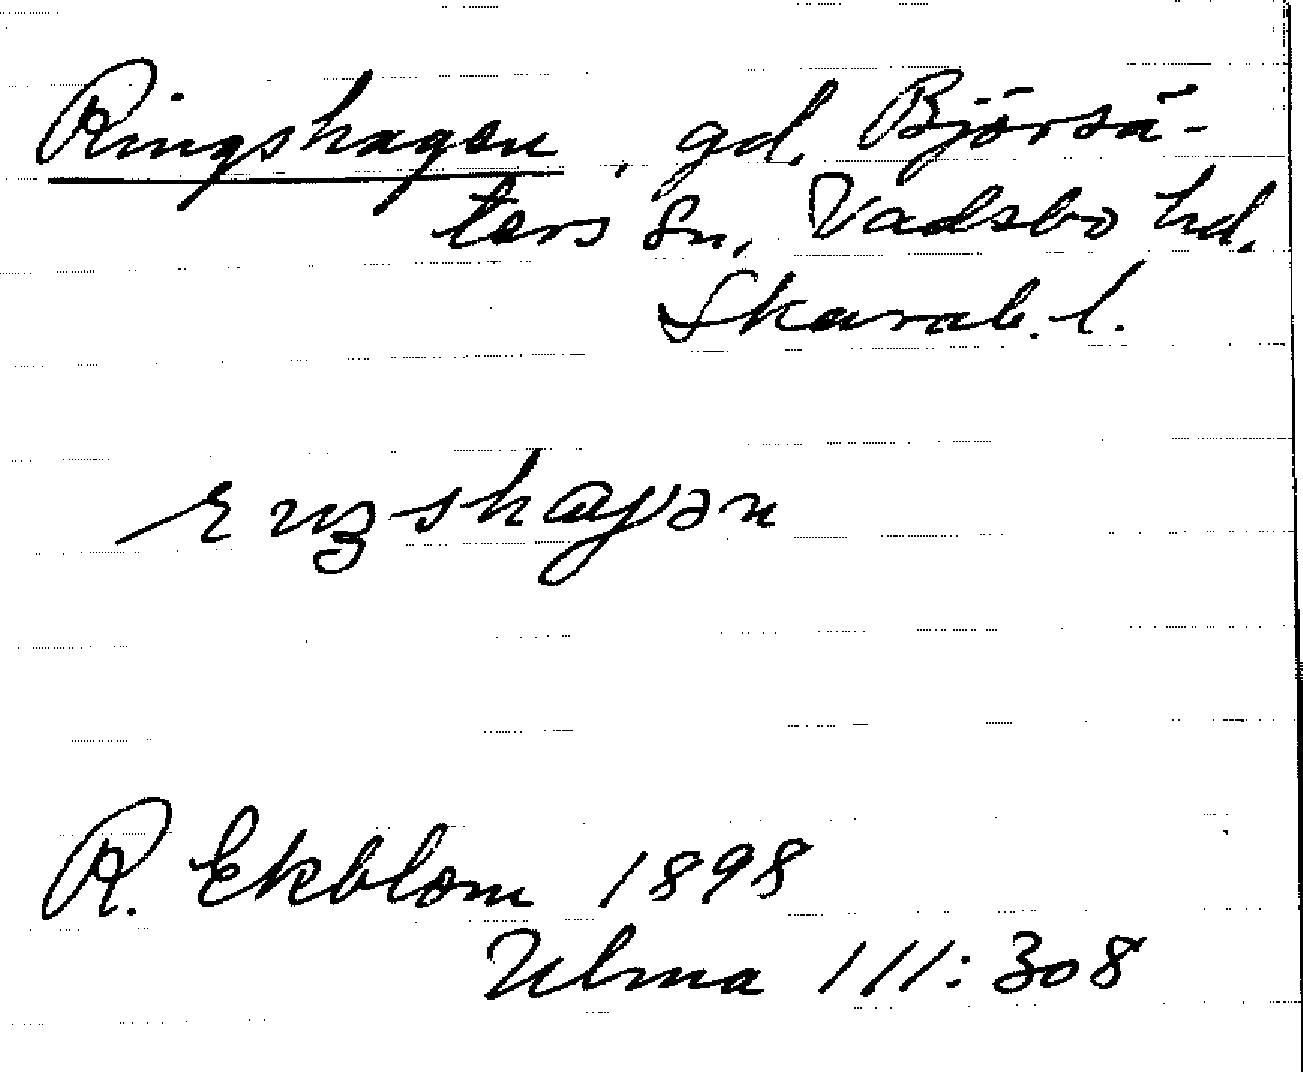 Ringshagen, gd. Björsä-
ters sn, Vadsbo hd.
Skarab. l.
R. Ekblom 1898
Ulma 111:308